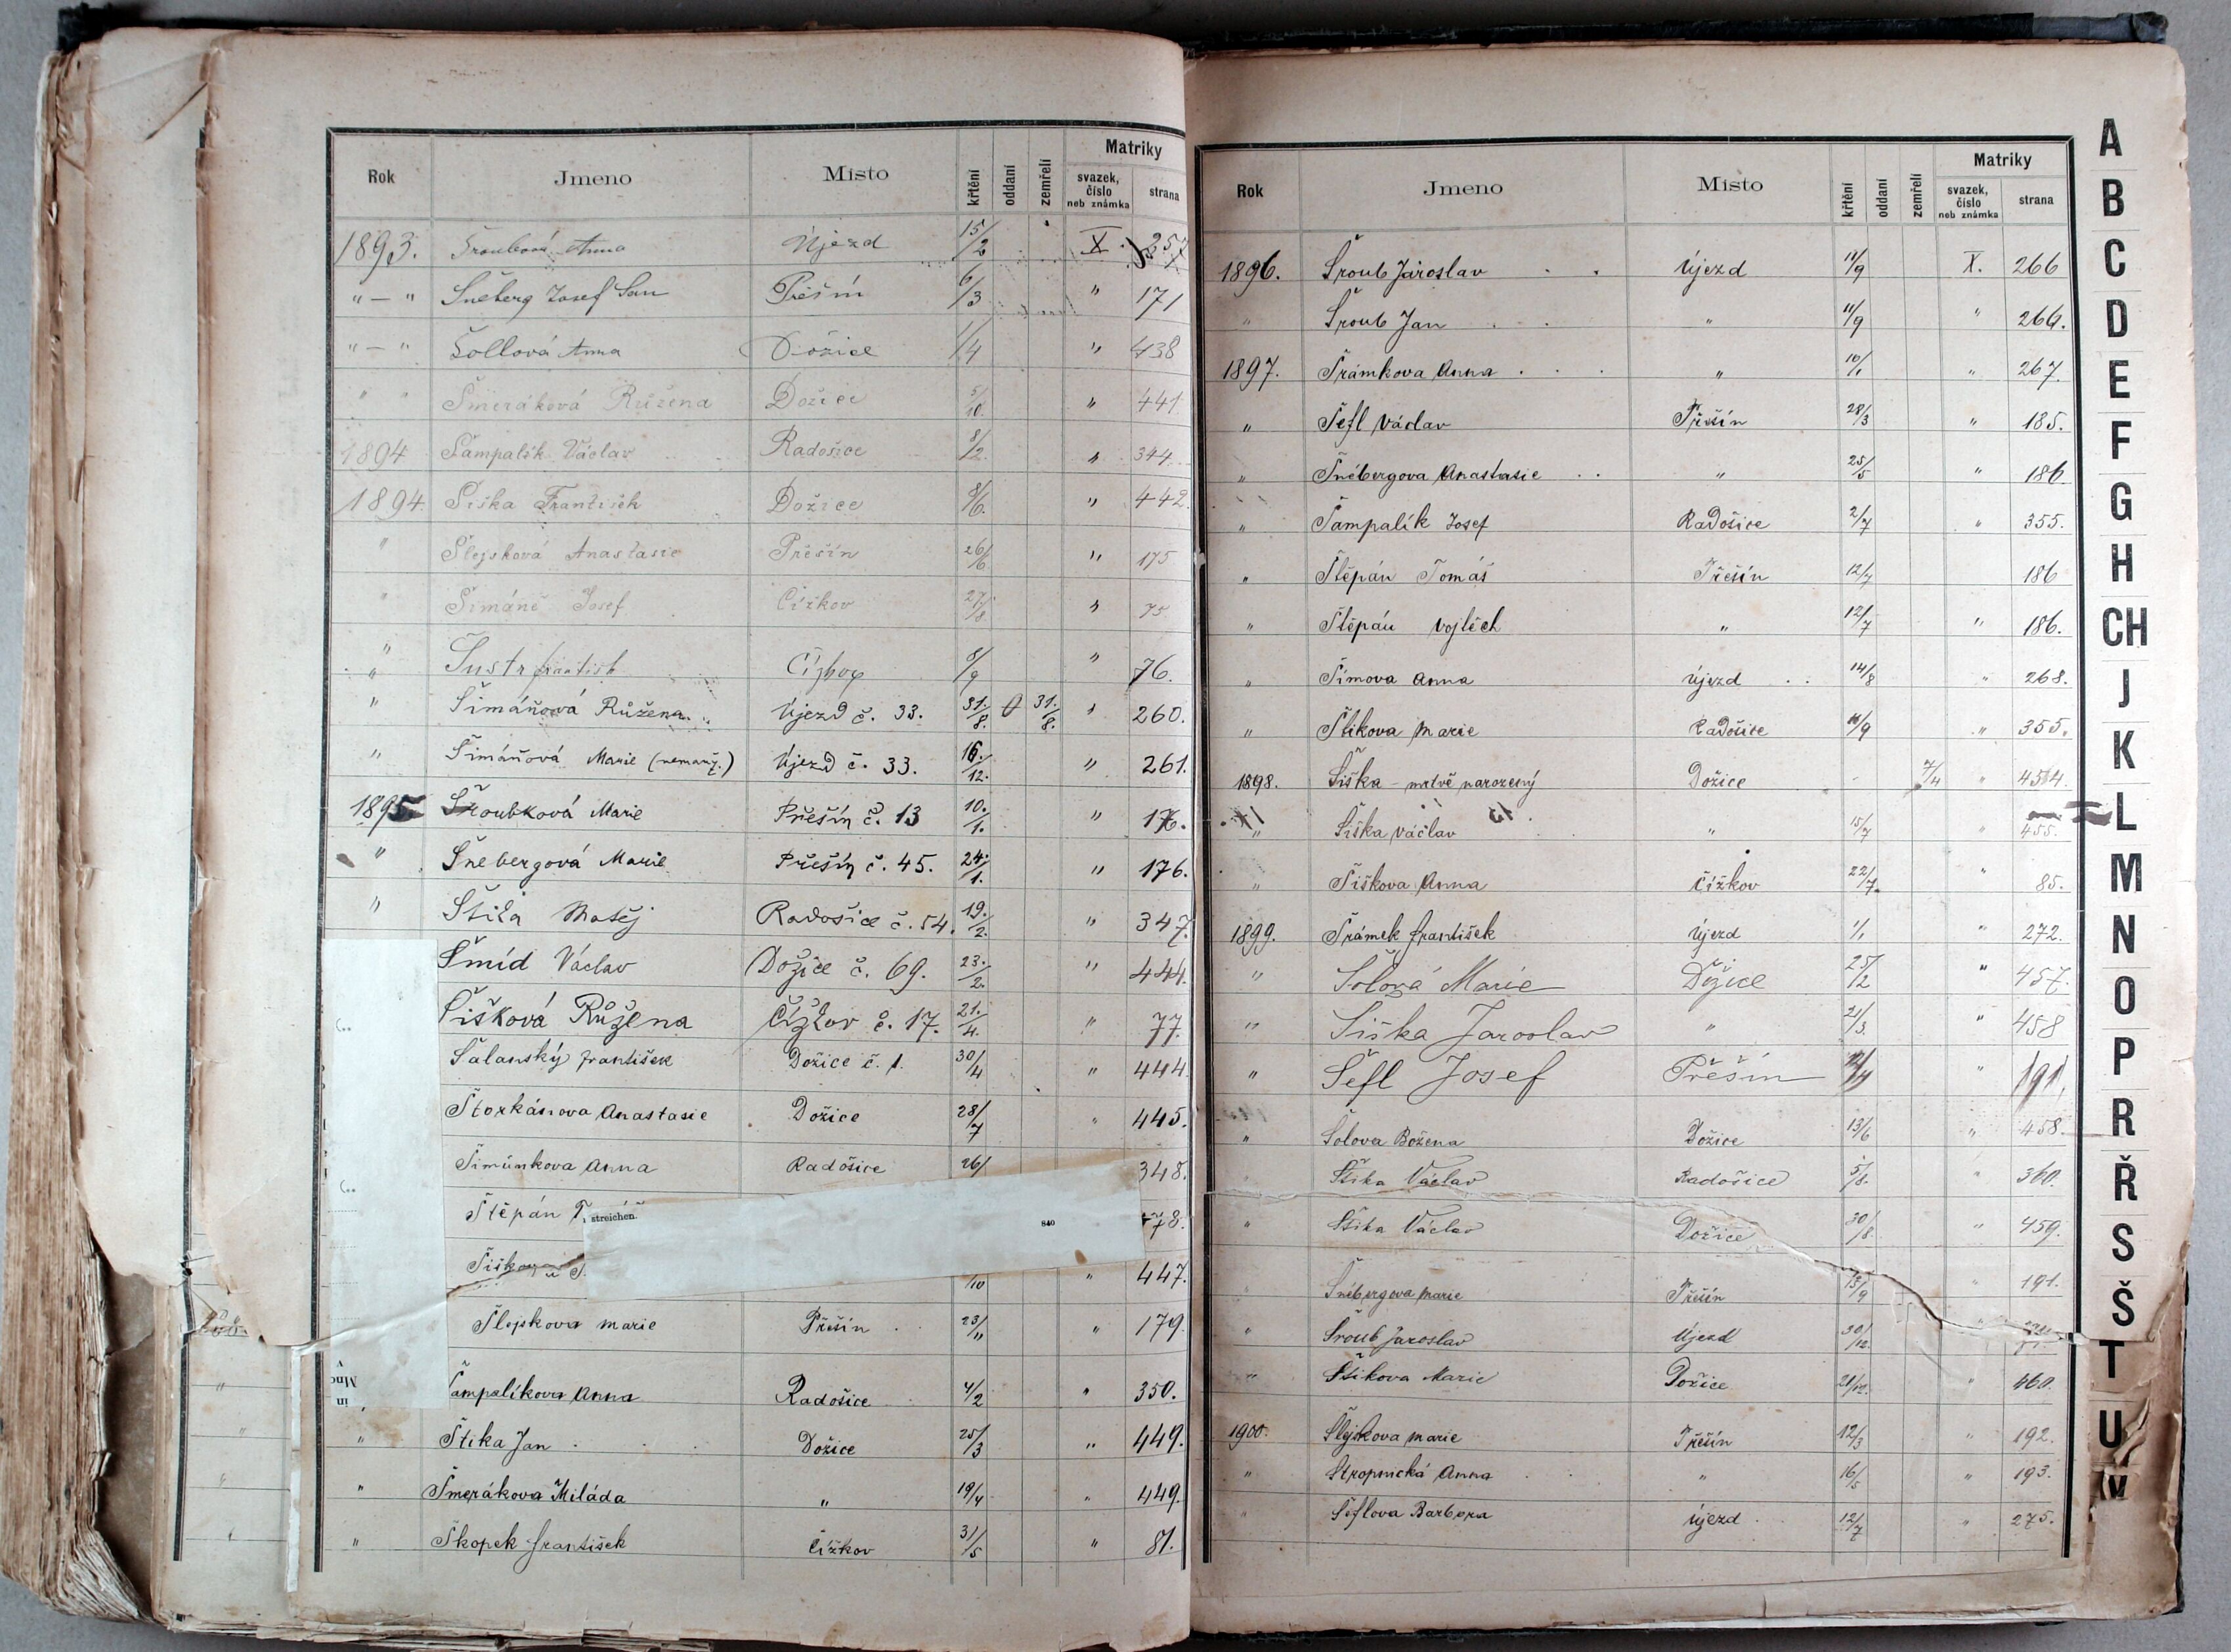 Rok Jmeno Místo křtění oddaní zemřelí Matriky svazek, číslo neb známka strana
1893. Šroubová Anna Újezd 15/2 X. 257
"—" Šneberg Josef Jan Přešín 6/3 " 171
"—" Šollová Anna Dožice 1/4 " 438
" " Šmeráková Růžena Dožice 5/10. " 441
1894 Šampalík Václav Radošice 8/2. " 344
1894. Šiška František Dožice 8/6. " 442.
" Šlejsková Anastasie Přešín 26/6 " 175
" Šimáně Josef Čížkov 27/8. " 75
" Šustr 8/9 " 76.
" Šimáňová Růžena Újezd č. 33. 31./8. 0 31./8. " 260.
" Šimáňová Marie (nemanž.) Újezd č. 33. 16./12. " 261.
1895 Šroubková Marie Přešín č. 13 10./1. " 176.
" Šnebergová Marie Přešín č. 45. 24./1. " 176.
" Matěj Radošice č. 54. 19./2. " 347.
Šmíd Václav Dožice č. 69. 23./2. " 444.
Šišková Růžena Čížkov č. 17. 21./4. " 77.
Šalanský František Dožice č. 1. 30/4 " 444
Štorkánova Anastasie Dožice 28/7 " 445.
Šimůnkova Anna Radošice 26/ 348.
Štěpán 78.
streichen. 840
/10 " 447.
Šlejskova Marie Přešín 23/11 " 179
Šampalíkova Anna Radošice 4/2 " 350.
" Štika Jan Dožice 25/3 " 449.
" Šmerákova Miláda " 19/4 " 449.
" Škopek František Čížkov 31/5 " 81.
Rok Jmeno Místo křtění oddaní zemřelí Matriky svazek, číslo neb známka strana
1896. Šroub Jaroslav Újezd 11/9 X. 266
" Šroub Jan " 11/9 " 266.
1897. Šrámkova Anna " 10/1 " 267.
" Šefl Václav Přešín 28/3 " 185.
" Šnébergova Anastasie " 25/5 " 186
" Šampalík Josef Radošice 2/7 " 355.
" Štěpán Tomáš Přešín 12/7 186
" Štěpán Vojtěch " 12/7 " 186.
" Šímova Anna Újezd 14/8 " 268.
" Štikova Marie Radošice /9 " 355.
1898. Šiška - mrtvě narozený Dožice - 7/4 " 454.
" Šiška Václav " 15/7 " 455.
" Šiškova Anna Čížkov 22/7. " 85.
1899. Šrámek František Újezd 1/1 " 272.
" Šolová Marie Dožice 25/2 " 457.
" Šiška Jaroslav " 21/3 " 458
" Šefl Josef Přešín /4 " 191,
" Šolova Božena Dožice 13/6 " 458.
" Štika Václav Radošice 5/8. " 360.
" Štika Václav Dožice 30/8. " 459.
" Šnébergova Marie Přešín 13/9 " 191.
" Šroub Jaroslav Újezd 30/12. "
" Štikova Marie Dožice 21/12. " 460.
1900. Šlejskova Marie Přešín 12/3 " 192.
" Stropnická Anna " 16/5 " 193.
" Šeflova Barbora Újezd 12/7 " 275.
A
B
C
D
E
F
G
H
CH
J
K
L
M
N
O
P
R
Ř
S
Š
T
U
V